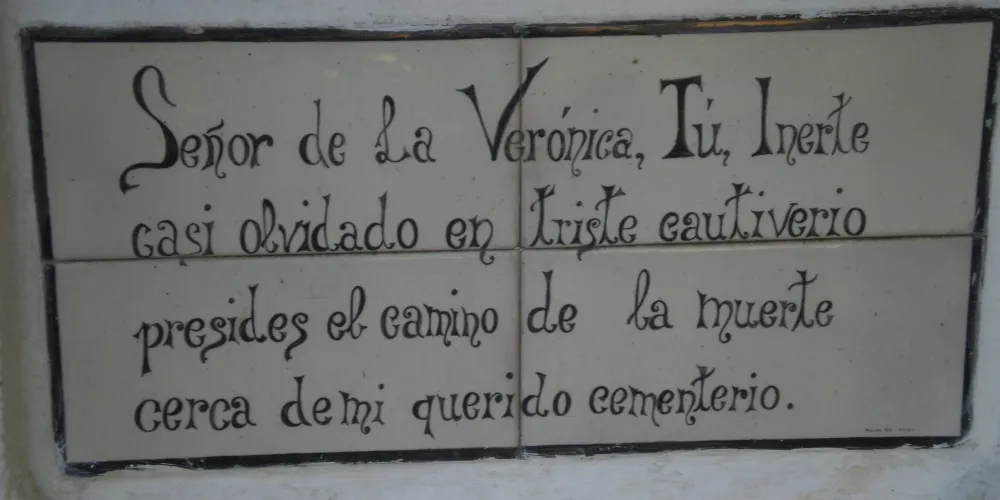 Señor de La Verónica, Tú, Inerte
casi olvidado en triste cautiverio
presides el camino de la muerte
cerca de mi querido cementerio.